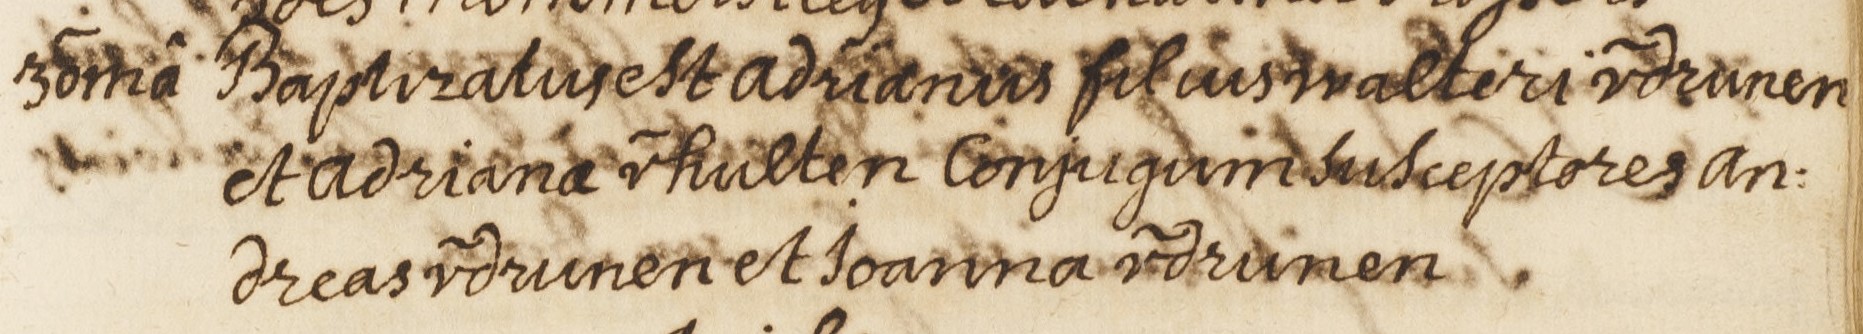 30mâ Baptizatus est Adrianus filius walteri v̄drunen
et Adrianæ v̄hulten Conjugum susceptores An:
dreas v̄drunen et Joanna v̄drunen